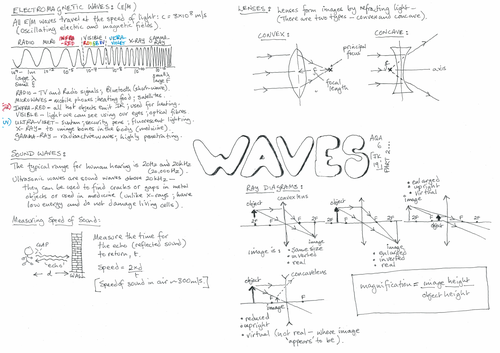 ELECTROMAGNETIC WAVES: (E/M)
All E/M waves travel at the speed of light: c = 3×10⁸ m/s
(oscillating electric and magnetic fields).
RADIO MICRO INFRA-RED VISIBLE (ROYGBIV) ULTRA-VIOLET X-RAY GAMMA-RAY
RADIO – TV and Radio signals; Bluetooth (short-wave).
MICROWAVES – mobile phones; heating food; satellites.
IR INFRA-RED – all hot objects emit IR; used for heating.
VISIBLE – light we can see using our eyes; optical fibres
UV ULTRA-VIOLET – suntan; security pens; fluorescent lighting.
X-RAY – to image bones in the body (medicine).
GAMMA-RAY – radioactive waves; highly penetrating.
SOUND WAVES:
The typical range for human hearing is 20Hz and 20kHz
(20,000Hz).
Ultrasonic waves are sound waves above 20kHz –
they can be used to find cracks or gaps in metal
objects or used in medicine (unlike X-rays; have
low energy and do not damage living cells).
Measuring Speed of Sound:
CLAP
'echo'
d
WALL
Measure the time for
the echo (reflected sound)
to return, t.
Speed = 2×d
t
[Speed of sound in air ~300m/s.]
LENSES:
Lenses form images by refracting light –
(There are two types – convex and concave).
CONVEX:
principal
focus
F
focal
length
CONCAVE:
F
axis
WAVES
AQA
PART 2...
RAY DIAGRAMS:
convex lens
object
2F
F
F
2F
Image
image is:
• same size
• inverted
• real
object
2F
F
F
2F
Image
• enlarged
• inverted
• real
• enlarged
• upright
• virtual
image
object
F
F
concave lens
object
F
Image
F
• reduced
• upright
• virtual (not real – where image
'appears to be').
magnification = image height
object height